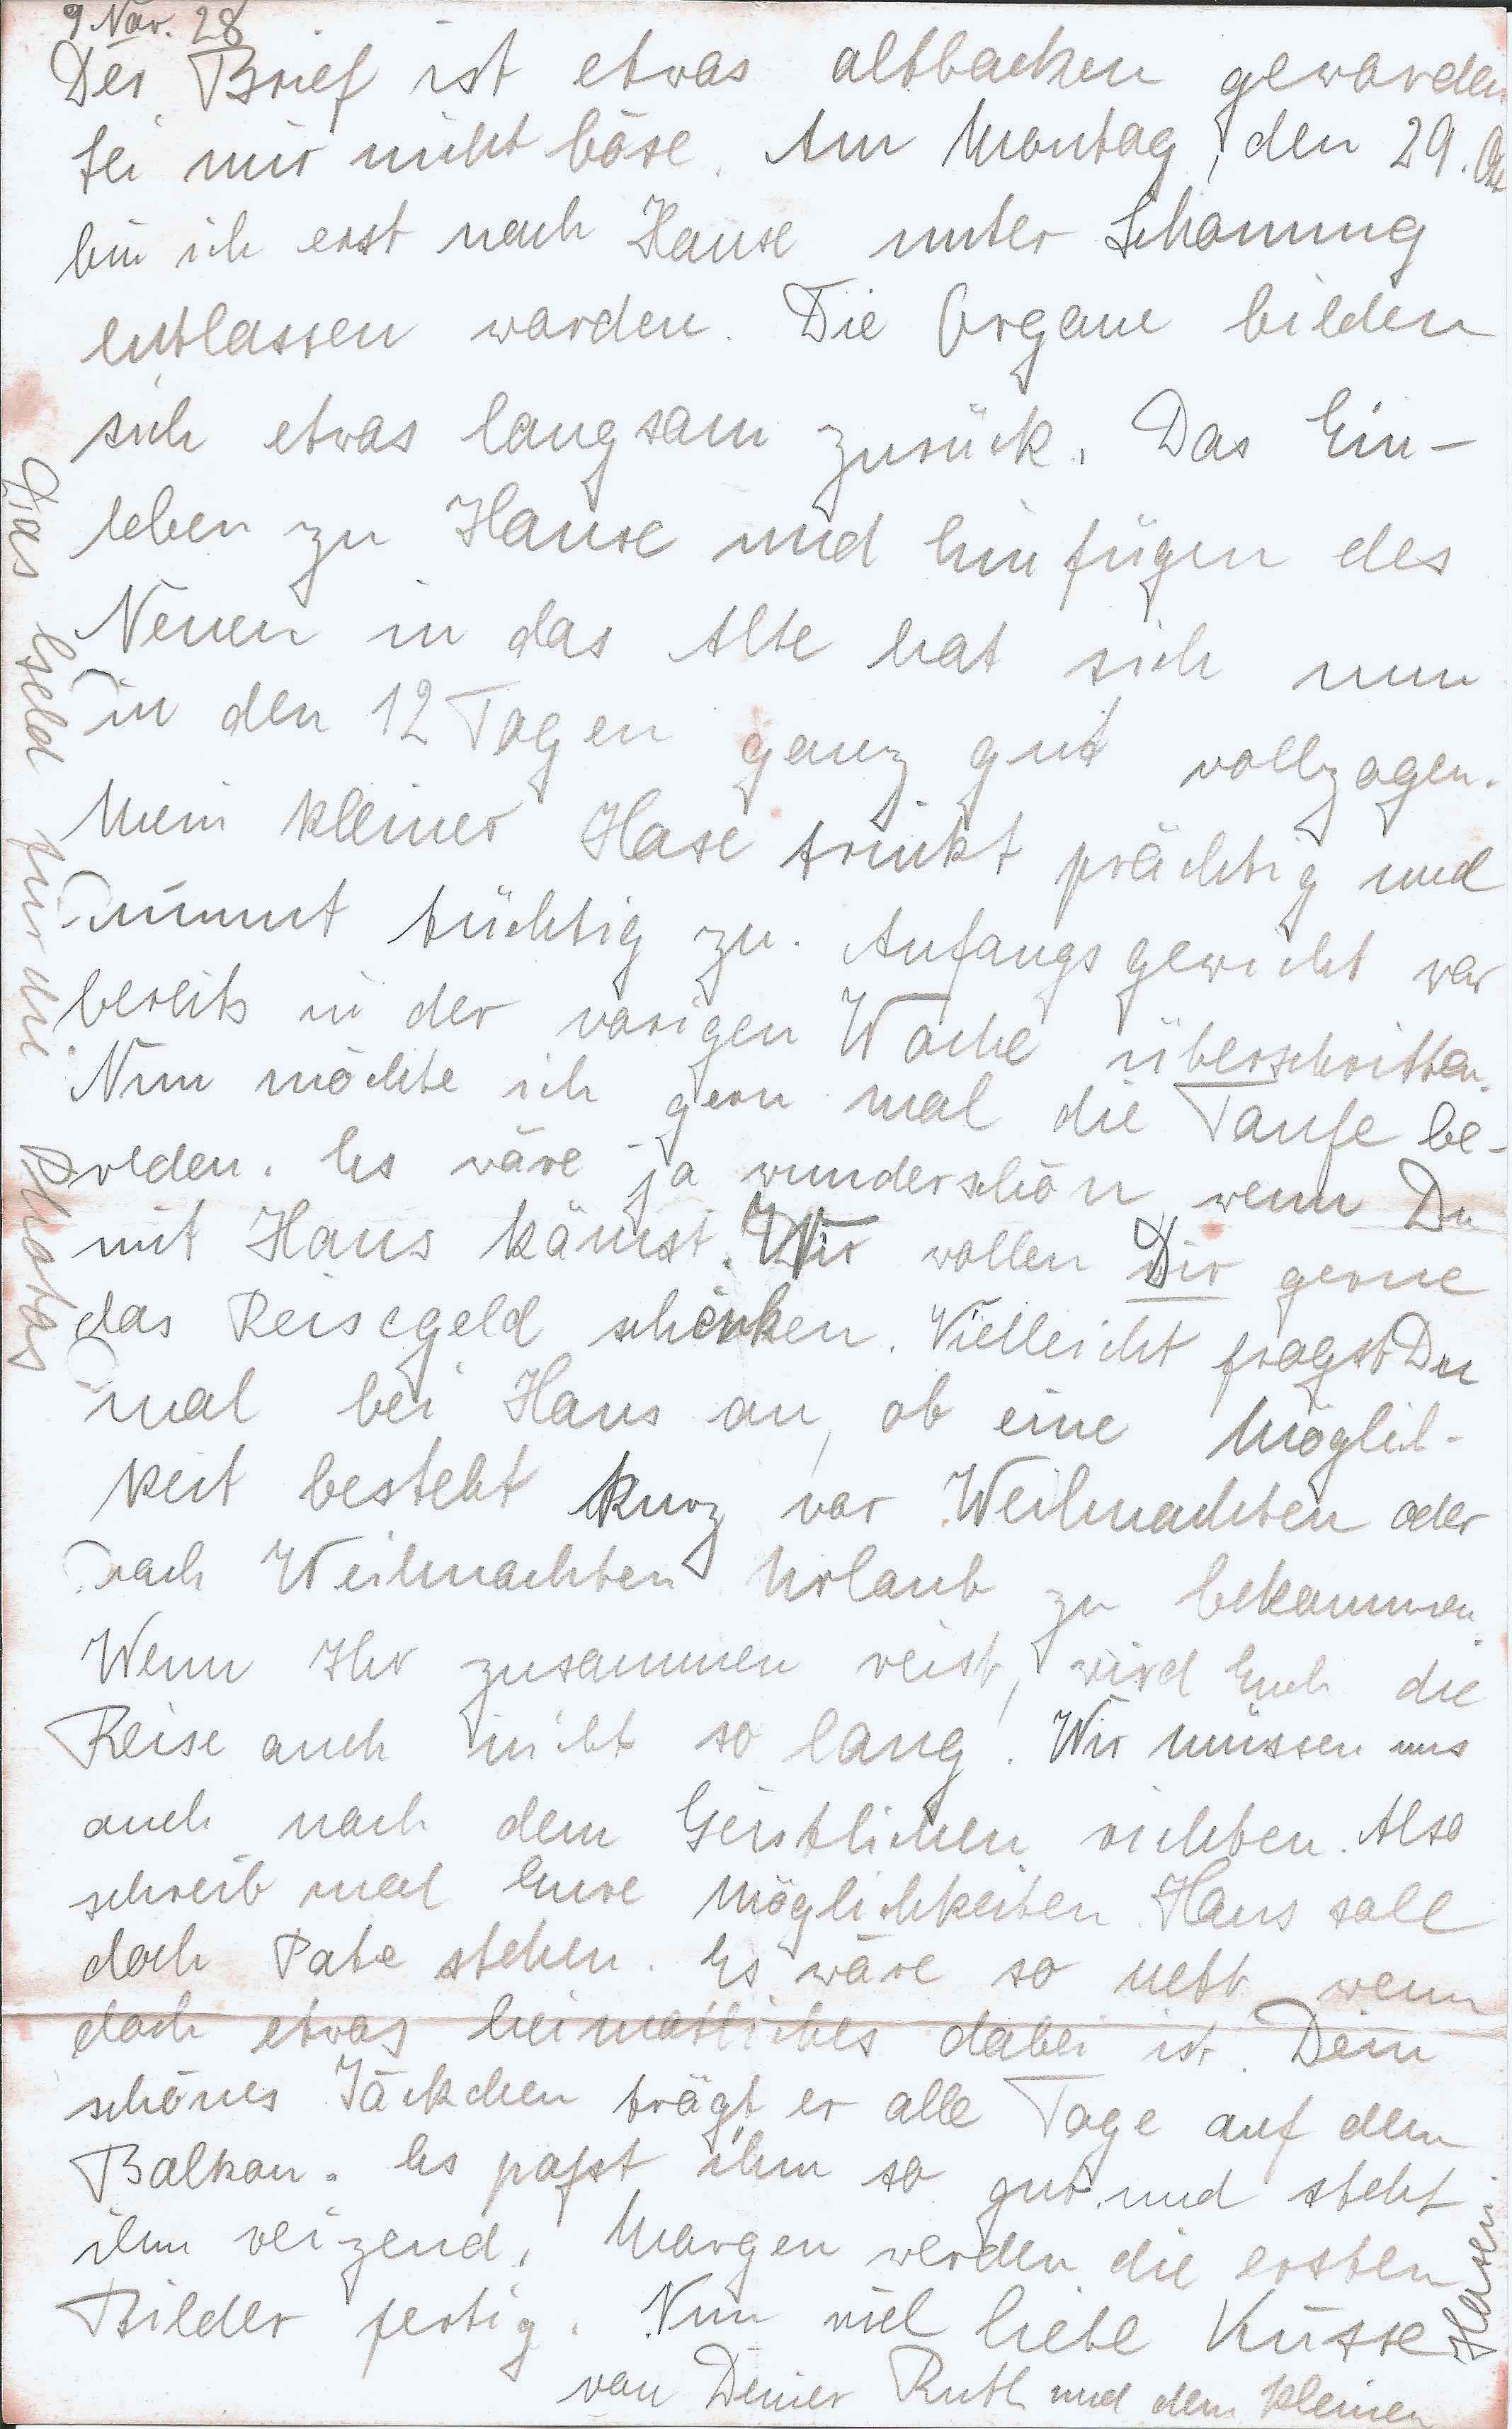 9 Nov. 28
Der Brief ist etwas altbacken geworden
sei mir nicht böse. Am Montag, den 29. Ok
bin ich erst nach Hause unter Schonung
entlassen worden. Die Organe bilden
sich etwas langsam zurück. Das Ein-
leben zu Hause und Einfügen des
Neuen in das Alte hat sich nun
in den 12 Tagen ganz gut vollzogen.
Mein kleiner Hase trinkt prächtig und
nimmt tüchtig zu. Anfangsgewicht war
bereits in der vorigen Woche überschritten.
Nun möchte ich gern mal die Taufe be-
reden. Es wäre ja wunderschön, wenn Du
mit Hans kämst. Wir wollen Dir gerne
das Reisegeld schenken. Vielleicht fragst Du
mal bei Hans an, ob eine Möglich-
keit besteht kurz vor Weihnachten oder
nach Weihnachten Urlaub zu bekommen.
Wenn Ihr zusammen reist, wird Euch die
Reise auch nicht so lang. Wir müssen uns
auch nach dem Geistlichen richten. Also
schreib mal Eure Möglichkeiten. Hans soll
doch Pate stehen. Es wäre so nett wenn
doch etwas heimatliches dabei ist. Dein
schönes Jäckchen trägt er alle Tage auf dem
Balkon. Es paßt ihm so gut und steht
ihm reizend. Morgen werden die ersten
Bilder fertig. Nun viel liebe Küsse
von Deiner Ruth und dem kleinen
Hasen
Das Geld für die Photos